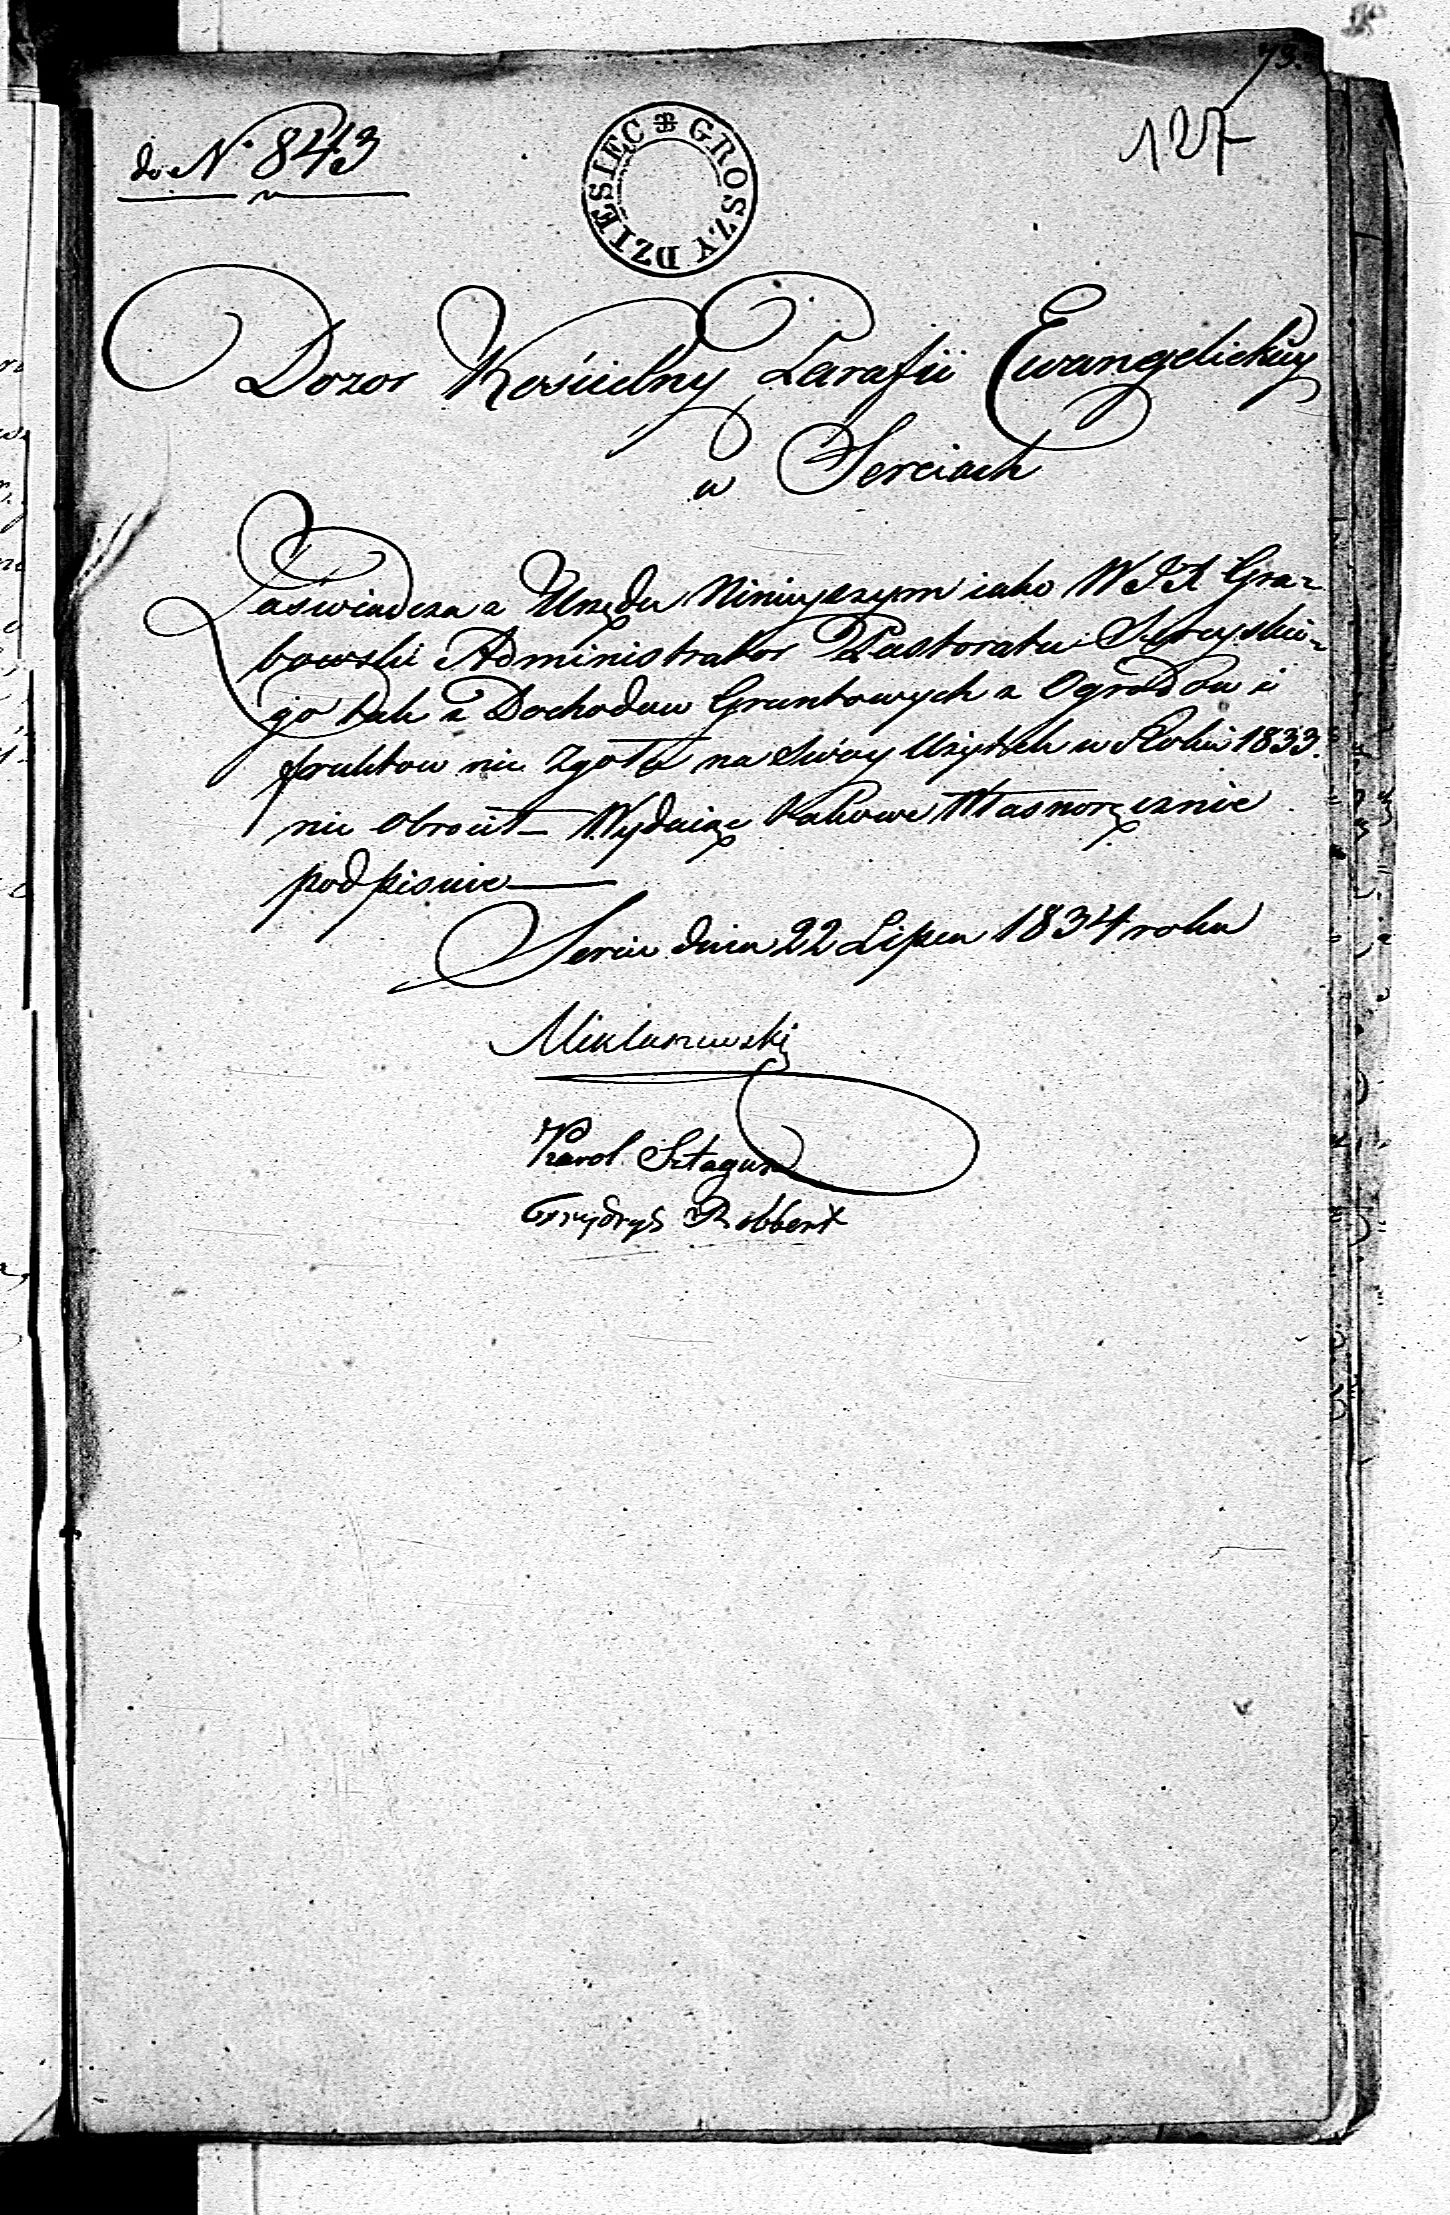 73.
127
do N. 843
DZIESIEC GROSZY
Dozor Kościelny Parafii Ewangelickiey
w Sereiach
Zaswiadcza z Urzędu Ninieyszym iako W JX Gra-
bowski Administrator Pastoratu Sereyskie-
go tak z Dochodow Gruntowych z Ogrodow i
fruktow nic zgoła na swóy Użytek w Roku 1833.
nie obrocił – Wydaiąc takowe Własnoręcznie
podpisuie
Sereie dnia 22 Lipca 1834 roku
Miklaszewski
Karol
Frydrych Robbert